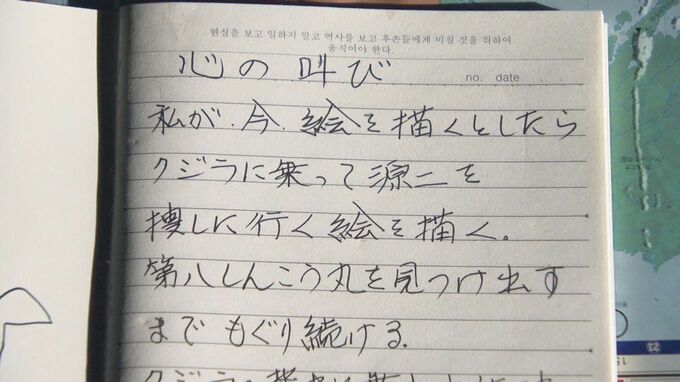 현실을 보고 일하지 말고 역사를 보고 후손들에게 미칠 것을 위하여
움직여야 한다.
心の叫び
no. date . .
私が、今、絵を描くとしたら
クジラに乗って源二を
捜しに行く絵を描く。
第八しんこう丸を見つけ出す
までもぐり続ける。
23
15